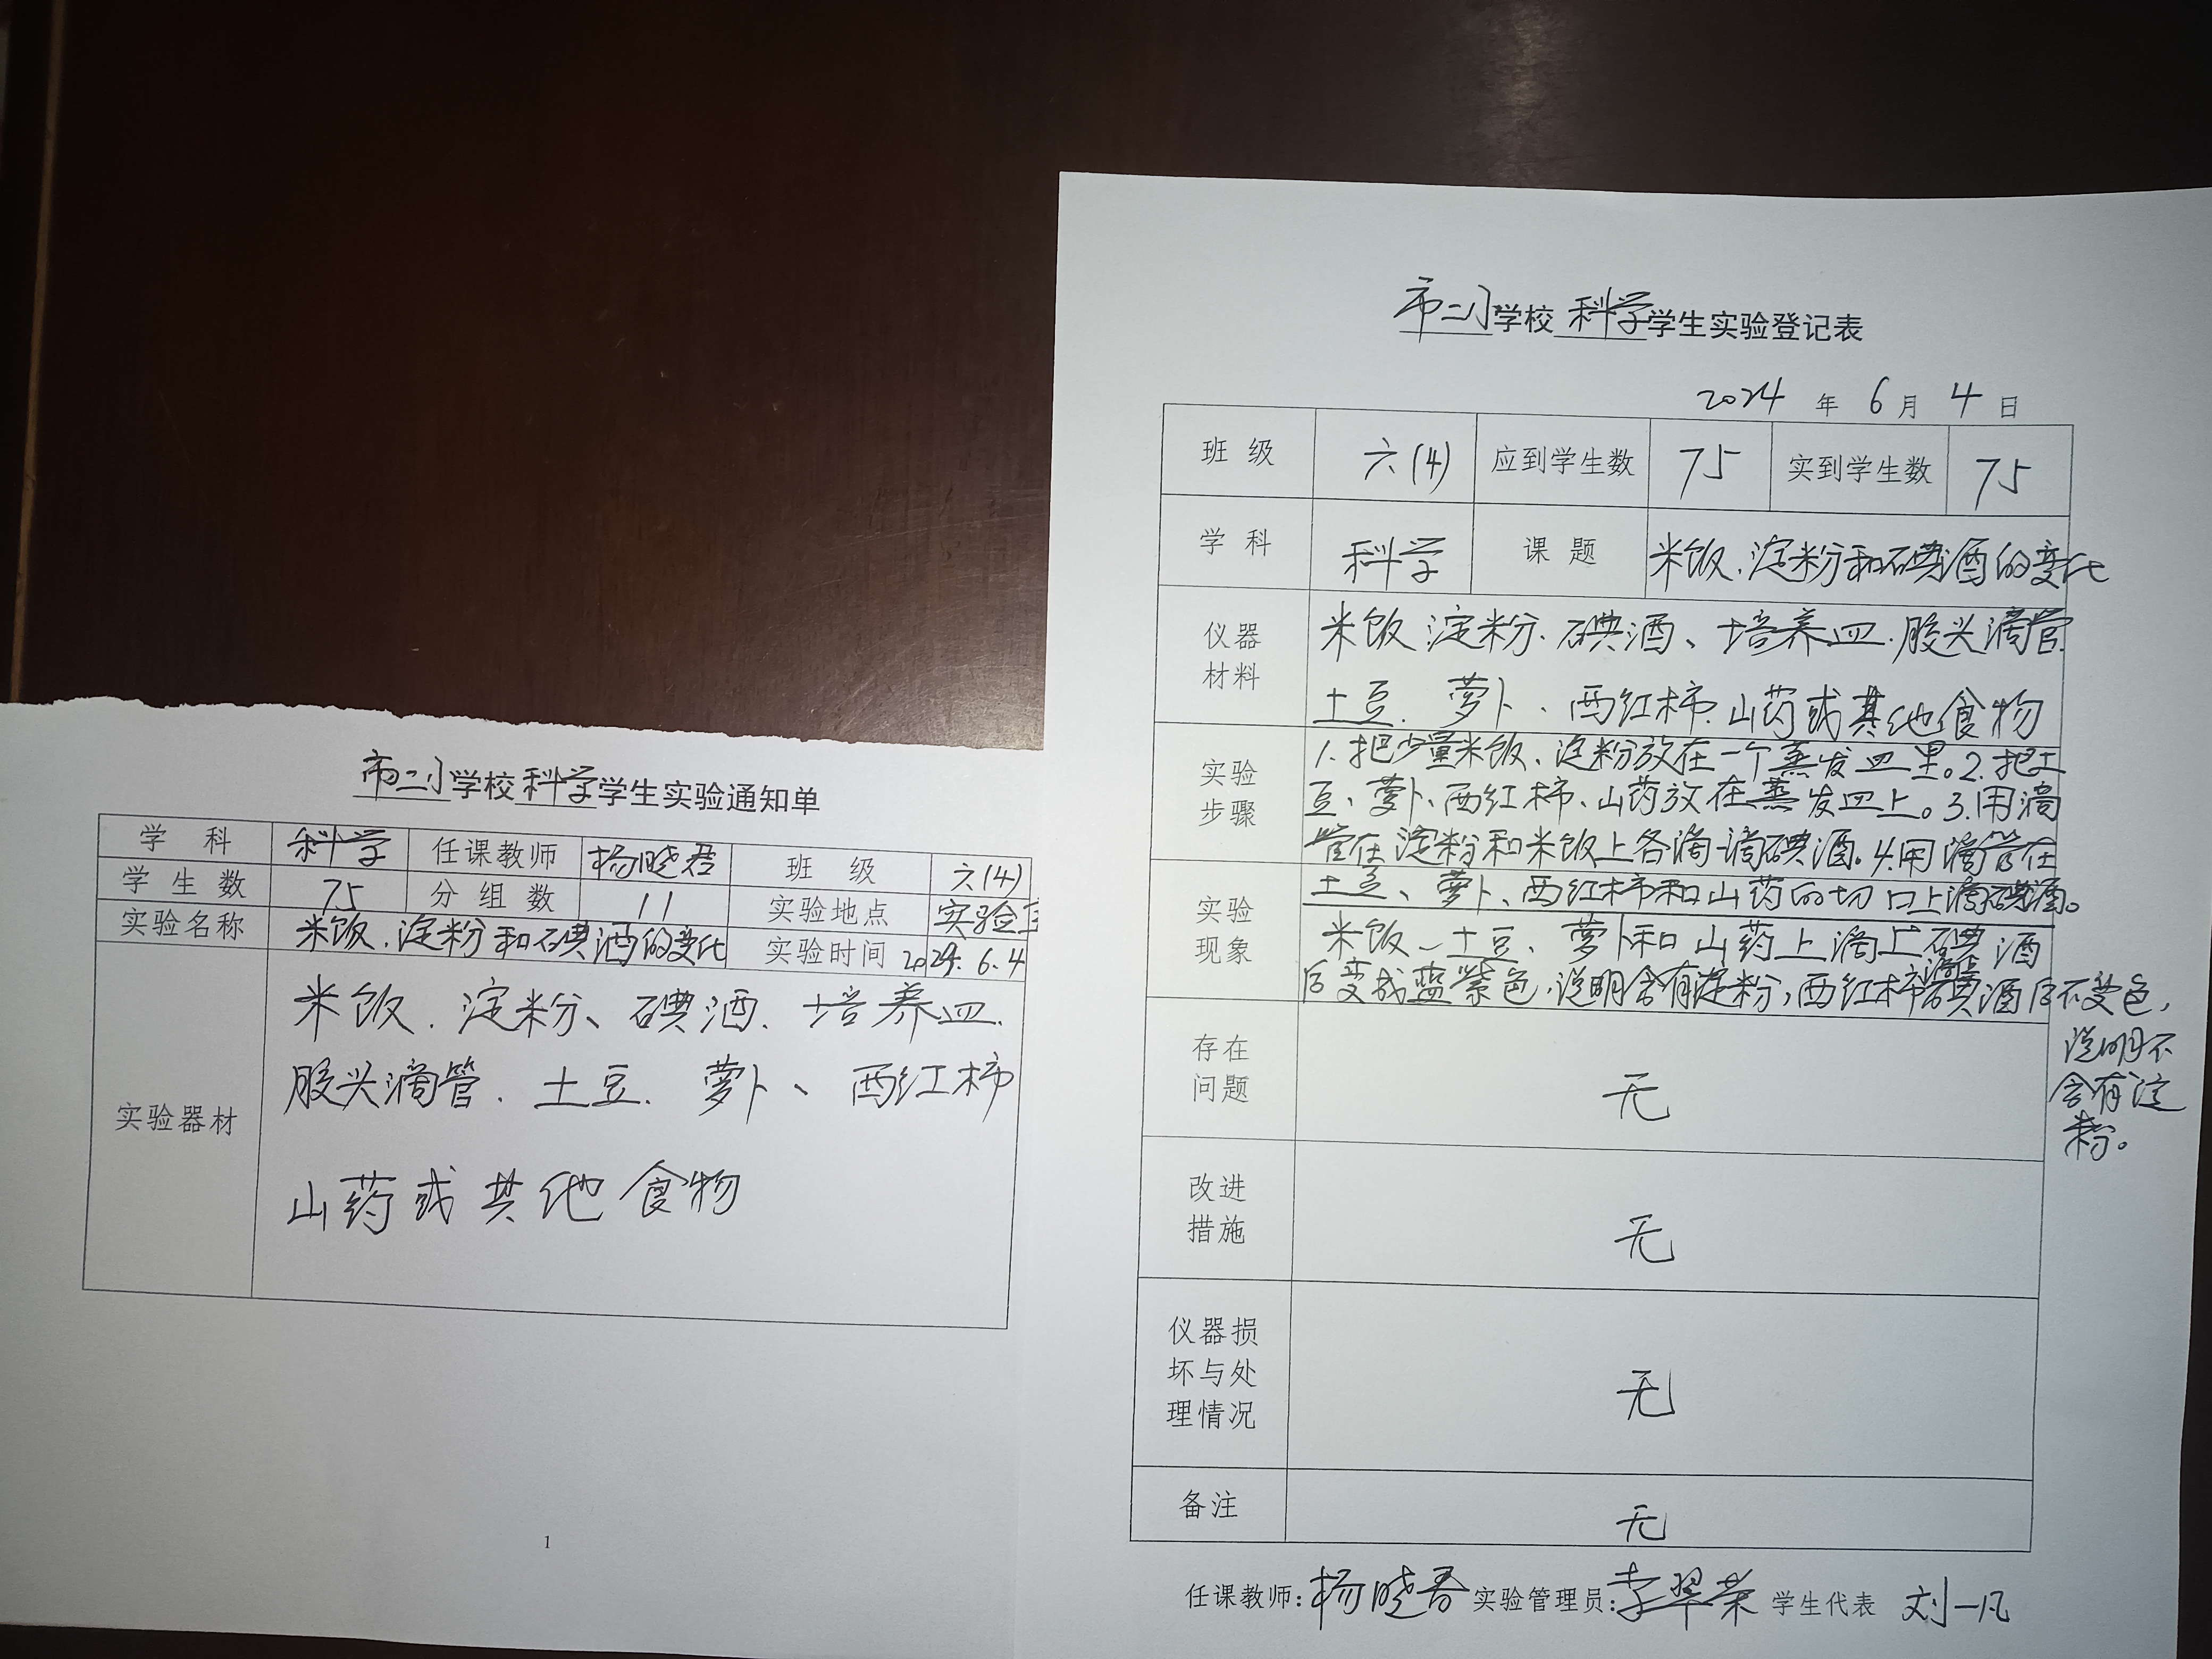 市二小学校科学学生实验通知单
学 科 科学 任课教师 杨晓春 班 级 六(4)
学 生 数 75 分 组 数 11 实验地点 实验室
实验名称 米饭、淀粉和碘酒的变化 实验时间 2024.6.4
实验器材
米饭、淀粉、碘酒、培养皿、
胶头滴管、土豆、萝卜、西红柿
山药或其他食物
1
市二小学校 科学学生实验登记表
2024 年 6 月 4 日
班 级 六(4) 应到学生数 75 实到学生数 75
学 科 科学 课 题 米饭、淀粉和碘酒的变化
仪器
材料
米饭 淀粉、碘酒、培养皿、胶头滴管
土豆、萝卜、西红柿、山药或其他食物
实验
步骤
1.把少量米饭、淀粉放在一个蒸发皿里。2.把土
豆、萝卜、西红柿、山药放在蒸发皿上。3.用滴
管在淀粉和米饭上各滴一滴碘酒。4.用滴管在
土豆、萝卜、西红柿和山药的切口上滴碘酒。
实验
现象
米饭、土豆、萝卜和山药上滴上碘酒
后变成蓝紫色,说明含有淀粉,西红柿滴上碘酒后不变色,
说明不
含有淀
粉。
存在
问题
无
改进
措施
无
仪器损
坏与处
理情况
无
备注
无
任课教师:杨晓春 实验管理员:李翠荣 学生代表 刘一凡